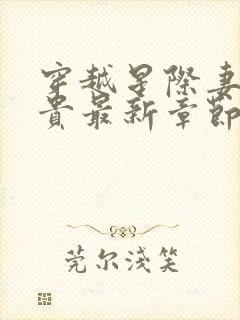 穿越星际妻
贵最新章節
莞尔浅笑